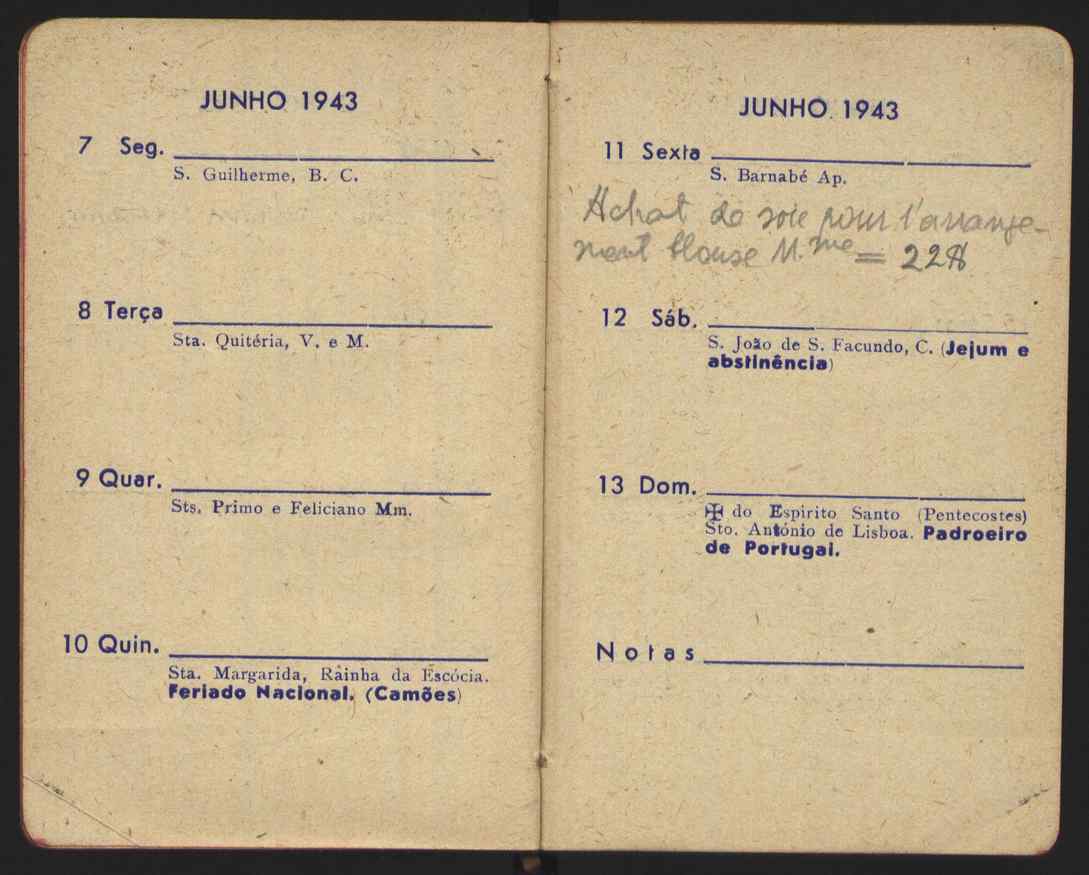 JUNHO 1943
7 Seg.
S. Guilherme, B. C.
8 Terça
Sta. Quitéria, V. e M.
9 Quar.
Sts. Primo e Feliciano Mm.
10 Quin.
Sta. Margarida, Raínha da Escócia.
Feriado Nacional. (Camões)
JUNHO 1943
11 Sexta
S. Barnabé Ap.
Achat de soie pour l'arrange-
ment blouse M.me = 22$
12 Sáb.
S. João de S. Facundo, C. (Jejum e
abstinência)
13 Dom.
✠ do Espírito Santo (Pentecostes)
Sto. António de Lisboa. Padroeiro
de Portugal.
Notas